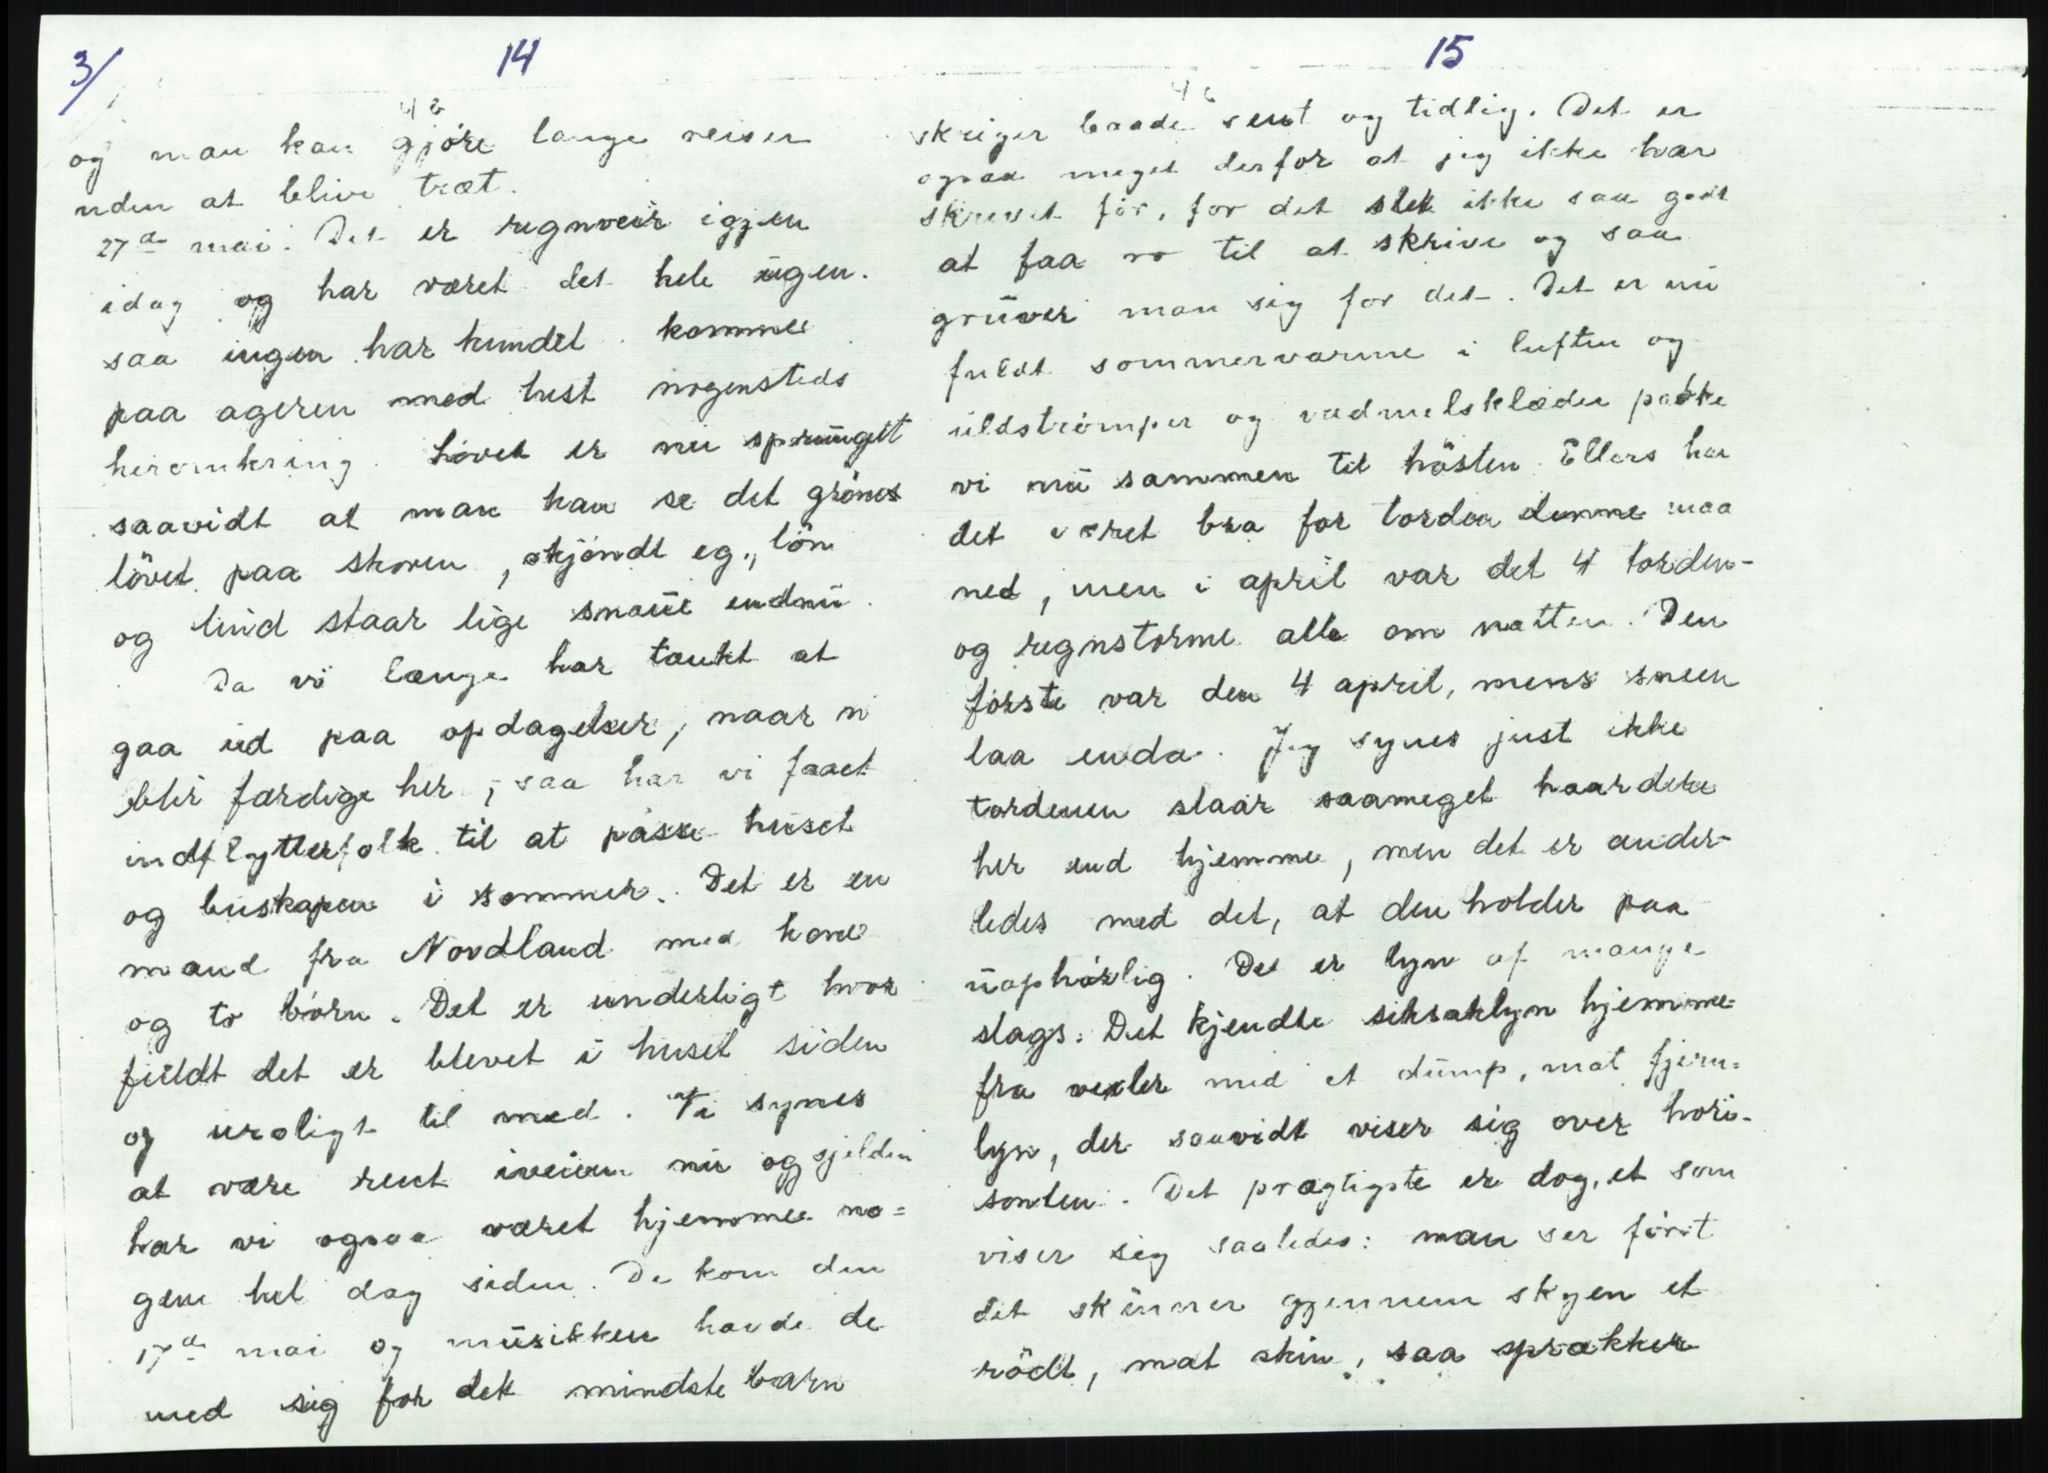 3/
14
og man kan gjöre lange reiser
uden at blive træt.
27de mai. Det er regnveir igjen
idag og har været det hele ugen.
saa ingen har kundet komme
paa ageren med hest nogensteds
heromkring. Løvet er nu sprunget
saavidt at man kan se det grönes
lövet paa skoven, skjöndt eg, lön
og lind staar lige snaue endnu.
Da vi længe har tænkt at
gaa ud paa opdagelser, naar vi
blir færdige her, saa har vi faaet
indflytterfolk til at passe huset
og buskapen i sommer. Det er en
mand fra Nordland med kone
og to börn. Det er underligt hvor
fuldt det er blevet i huset siden
og uroligt til med. Vi synes
at være rent iveien nu og sjelden
har vi ogsaa været hjemme no=
gen hel dag siden. De kom den
17de mai og musikken havde de
med sig for det mindste barn
15
skriger baade sent og tidlig. Det er
ogsaa meget derfor at jeg ikke har
skrevet för, for det slek ikke saa godt
at faa ro til at skrive og saa
gruver man sig for det. Det er nu
fuldt sommervarme i luften og
uldströmper og vadmelsklæder pakke
vi nu sammen til hösten. Ellers har
det været bra for torden denne maa
ned, men i april var det 4 torden-
og regnstorme alle om natten. Den
förste var den 4 april, mens sneen
laa enda. Jeg synes just ikke
tordenen slaar saameget haardere
her end hjemme, men det er ander-
ledes med det, at den holder paa
uophörlig. Det er lyn af mange
slags: Det kjendte siksaklyn hjemme=
fra vexler med et dump, mat fjern=
lyn, der saavidt viser sig over hori-
sonten. Det prægtigste er dog, et som
viser sig saaledes: man ser först
det skinner gjennem skyen et
rödt, mat skin, saa sprækker